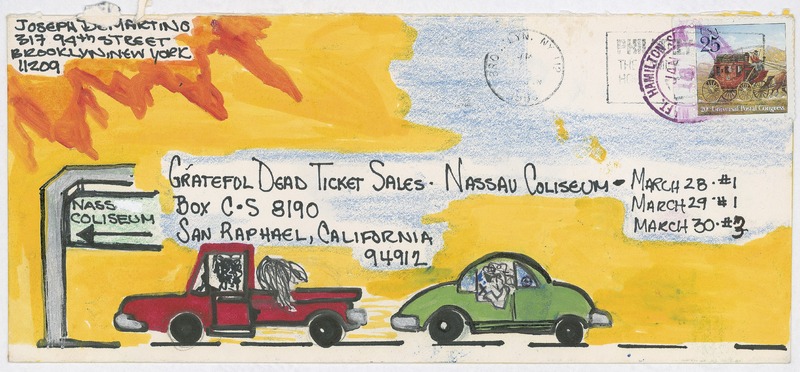 JOSEPH DEMARTINO
317 94th STREET
BROOKLYN, NEW YORK
11209
USA
25
20th Universal Postal Congress
HAMILTON
GRATEFUL DEAD TICKET SALES · NASSAU COLISEUM - MARCH 28 · #1
BOX C·S 8190
MARCH 29 #1
SAN RAPHAEL, CALIFORNIA
MARCH 30 · #3
94912
NASS
COLISEUM